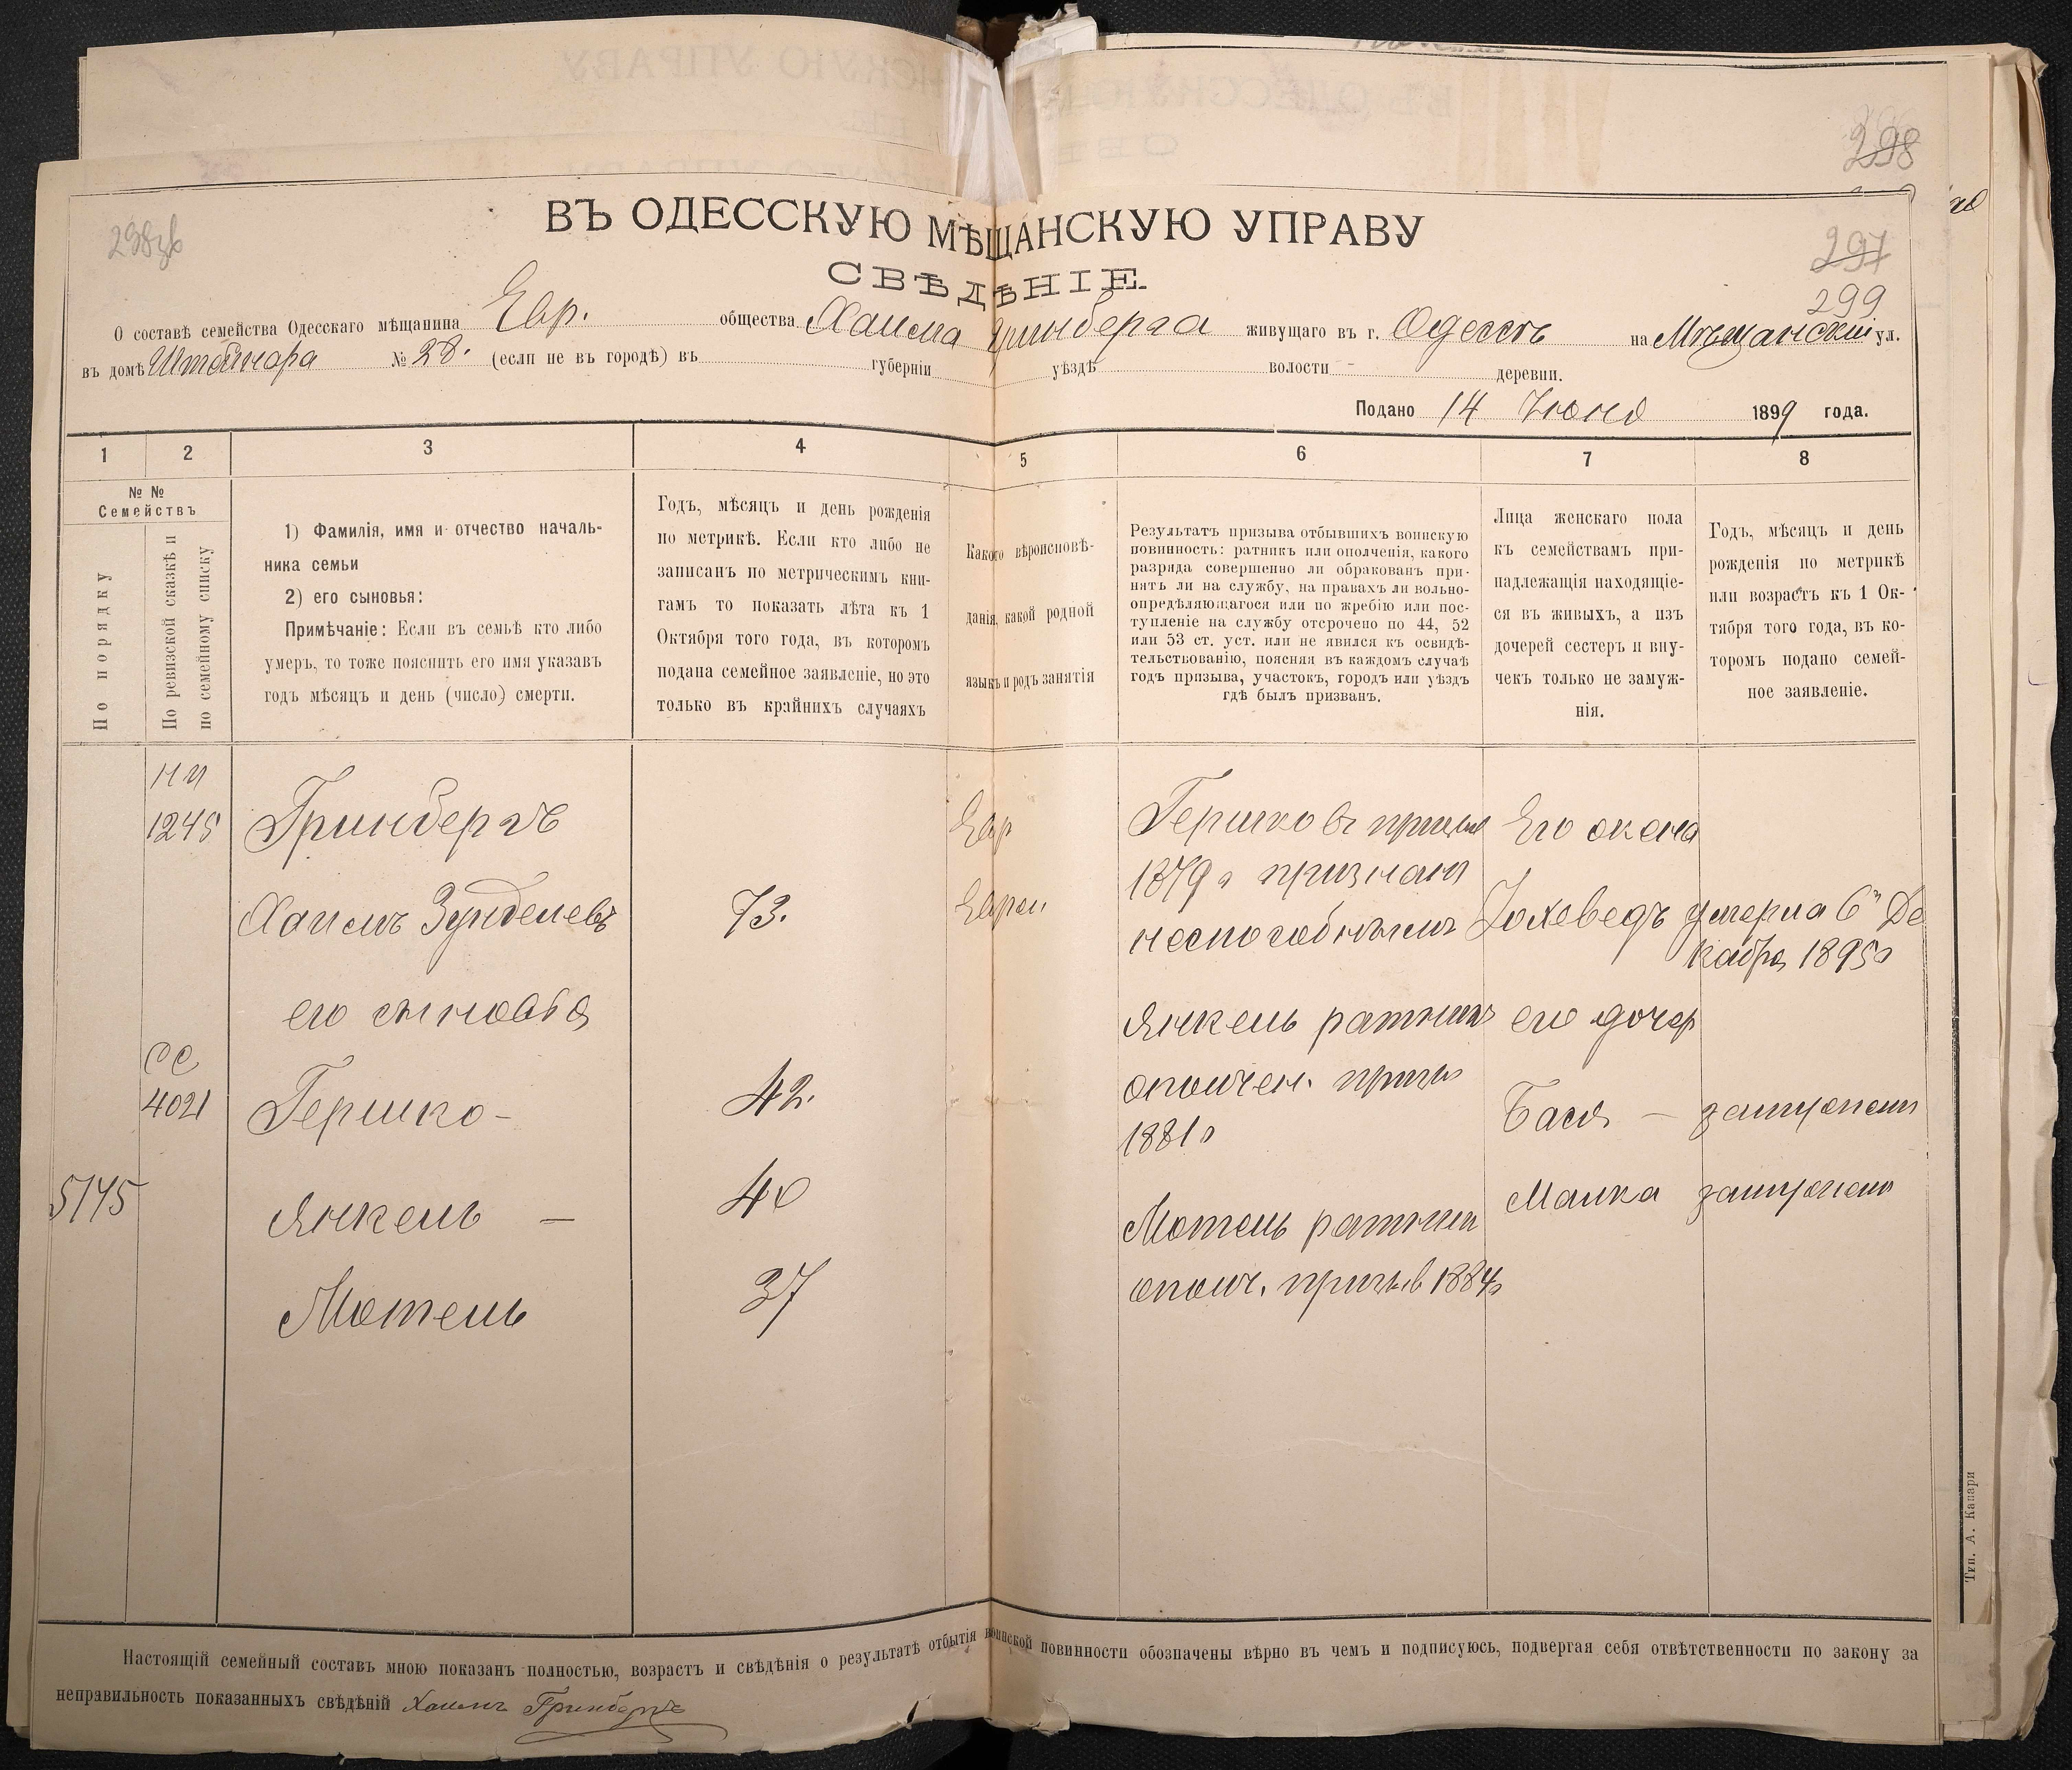 298
298 зв
297
299
ВЪ ОДЕССКУЮ МѢЩАНСКУЮ УПРАВУ
СВѢДѢНІЕ.
О составѣ семейства Одесскаго мѣщанина Евр. общества Хаима Гринберга живущаго въ г. Одессѣ на Мѣщанской ул.
въ домѣ № 28. (если не въ городѣ) въ губерніи уѣздѣ волости деревни.
Подано 14 Іюня 1899 года.
1 2 3 4 5 6 7 8
№ №
Семействъ
По порядку
По ревизской сказкѣ и
по семейному списку
1) Фамилія, имя и отчество началь-
ника семьи
2) его сыновья:
Примѣчаніе: Если въ семьѣ кто либо
умеръ, то тоже пояснить его имя указавъ
годъ мѣсяцъ и день (число) смерти.
Годъ, мѣсяцъ и день рожденія
по метрикѣ. Если кто либо не
записанъ по метрическимъ кни-
гамъ то показать лѣта къ 1
Октября того года, въ которомъ
подана семейное заявленіе, но это
только въ крайнихъ случаяхъ
Какого вѣроисповѣ-
данія, какой родной
языкъ и родъ занятія
Результатъ призыва отбывшихъ воинскую
повинность: ратникъ или ополченія, какого
разряда совершенно ли обракованъ при-
нятъ ли на службу, на правахъ ли вольно-
опредѣляющагося или по жребію или пос-
тупленіе на службу отсрочено по 44, 52
или 53 ст. уст. или не явился къ освидѣ-
тельствованію, поясняя въ каждомъ случаѣ
годъ призыва, участокъ, городъ или уѣздъ
гдѣ былъ призванъ.
Лица женскаго пола
къ семействамъ при-
надлежащія находящіе-
ся въ живыхъ, а изъ
дочерей сестеръ и вну-
чекъ только не замуж-
нія.
Годъ, мѣсяцъ и день
рожденія по метрикѣ
или возрастъ къ 1 Ок-
тября того года, въ ко-
торомъ подано семей-
ное заявленіе.
1245
Гринбергъ
Хаимъ Зунделевъ 73.
его сыновья
4021
Гершко - 42.
5145
Янкель — 40
Мотель 37
Евр
Евреи
Гершко въ призыв
1879 г признан
неспособнымъ
Янкель ратникъ
ополчен. призы
1881 г
Мотель ратник
ополч. призыв 1884 г
Его жена
Іохеведъ умерла 6 Де
кабря 1895 г
его дочер
Бася — замужем
Малка замужем
Настоящій семейный составъ мною показанъ полностью, возрастъ и свѣдѣнія о результатѣ отбытія воинской повинности обозначены вѣрно въ чемъ и подписуюсь, подвергая себя отвѣтственности по закону за
неправильность показанныхъ свѣдѣній Хаимъ Гринбергъ
Тип. А. Капари